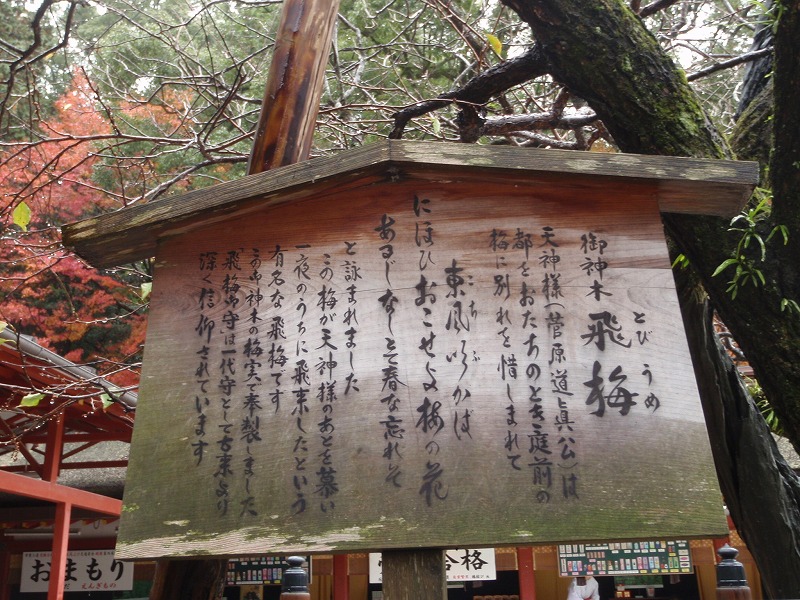 御神木 飛梅
とびうめ
天神様(菅原道真公)は
都をおたちのとき庭前の
梅に別れを惜しまれて
東風吹かば
こちふ
にほひおこせよ梅の花
あるじなしとて春な忘れそ
と詠まれました
この梅が天神様のあとを慕い
一夜のうちに飛来したという
有名な飛梅です
この御神木の梅実で奉製しました
「飛梅御守」は一代守として古来より
深く信仰されています
おまもり
合格